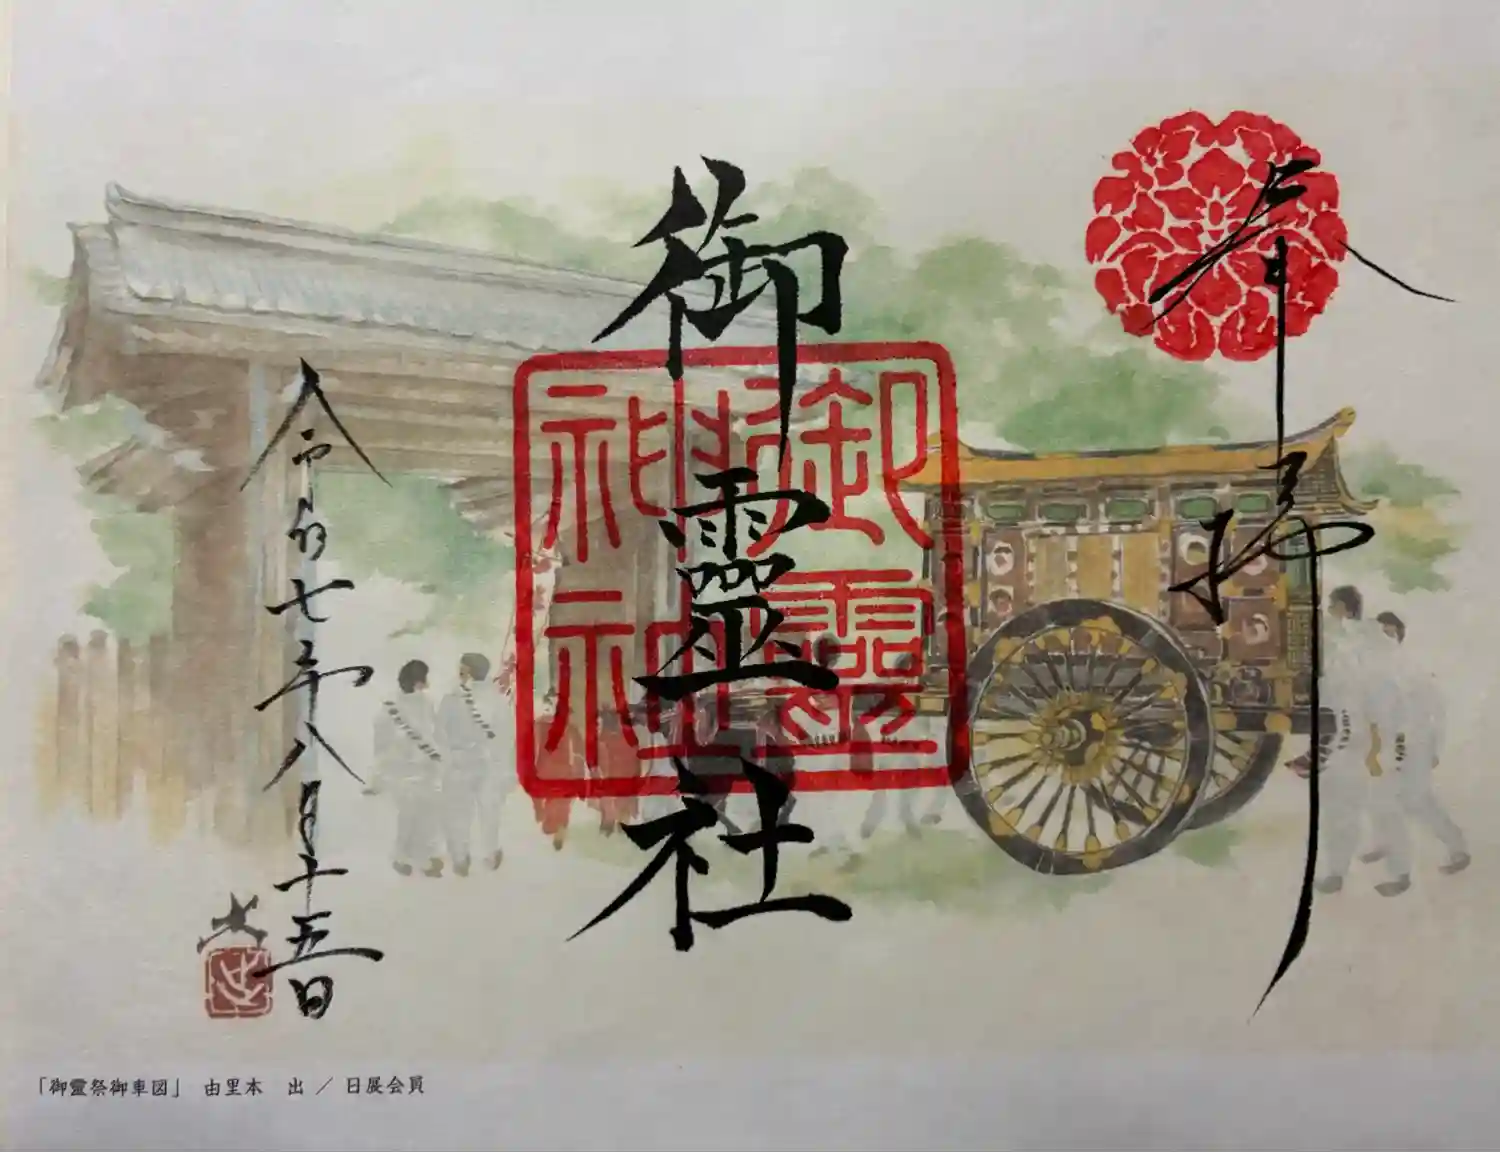 奉拝
御靈社
御靈神社
令和七年八月十五日
出
「御霊祭御車図」 由里本 出 / 日展会員